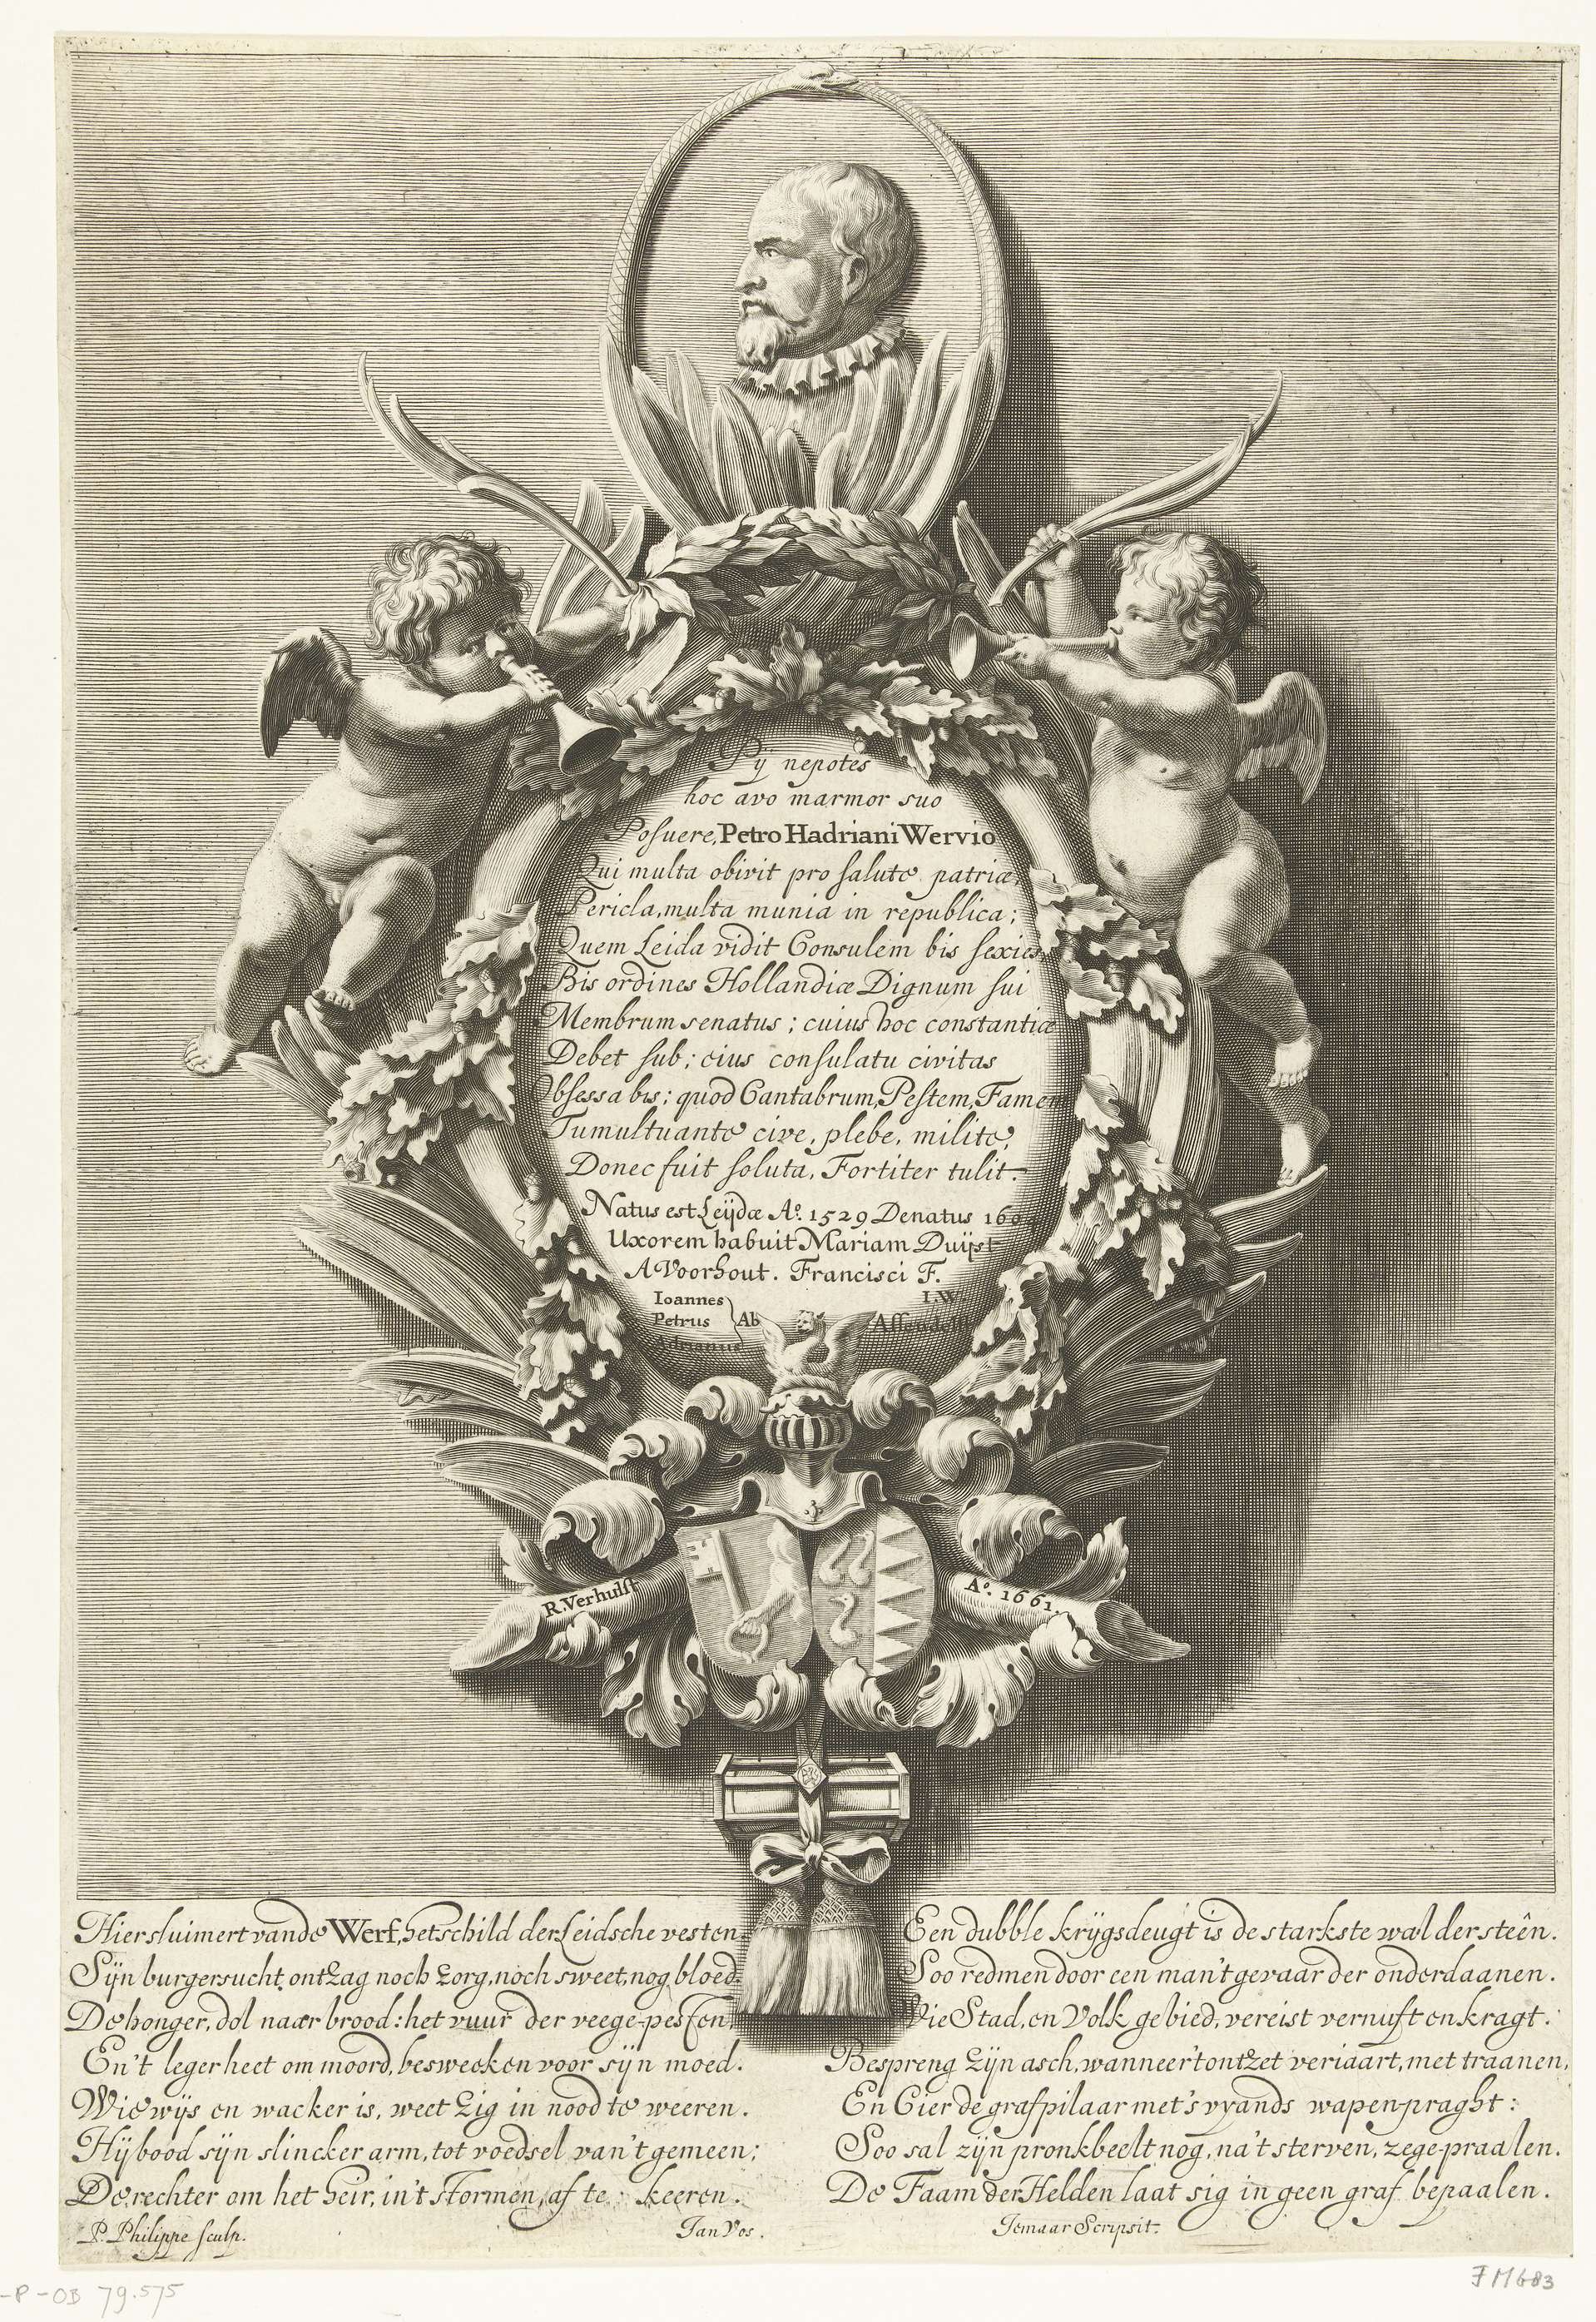 Pij nepotes
hoc avo marmor suo
Posuere, Petro Hadriani Wervio
Qui multa obivit pro salute patriæ,
Pericla, multa munia in republica;
Quem Leida vidit Consulem bis sexies,
Bis ordines Hollandiæ Dignum sui
Membrum senatus; cuius hoc constantiæ
Debet sub; eius consulatu civitas
Obsessa bis; quod Cantabrum, Pestem, Famem
Tumultuante cive, plebe, milite,
Donec fuit soluta, Fortiter tulit.
Natus est Leijdæ Aº. 1529 Denatus 160
Uxorem habuit Mariam Duijst
A Voorhout. Francisci F.
Ioannes I.W.
Petrus Ab Assendelft
Adrianus
R. Verhulst
Aº. 1661.
Hier sluimert vande Werf, het schild der Leidsche vesten.
Sijn burgersucht ontzag noch zorg, noch sweet, nog bloed.
De honger, dol naar brood: het vuur der veege-pesten,
En't leger heet om moord, besweeken voor sijn moed.
Wie wijs en wacker is, weet zig in nood te weeren.
Hij bood sijn slincker arm, tot voedsel van 't gemeen;
De rechter om het heir, in't stormen, af te keeren.
Een dubble krijgsdeugt is de starkste wal der steên.
Soo redmen door een man 't gevaar der onderdaanen.
Wie Stad, en Volk gebied, vereist vernuft en kragt.
Bespreng zijn asch, wanneer 't ontzet veriaart, met traanen,
En Cier de grafpilaar met 's vyands wapen-praght:
Soo sal zijn pronkbeelt nog, na't sterven, zege-praalen.
De Faam der Helden laat sig in geen graf bepaalen.
P. Philippe sculp.
Jan Vos.
Jemaar Scripsit.
-P-OB 79.575
FM 683